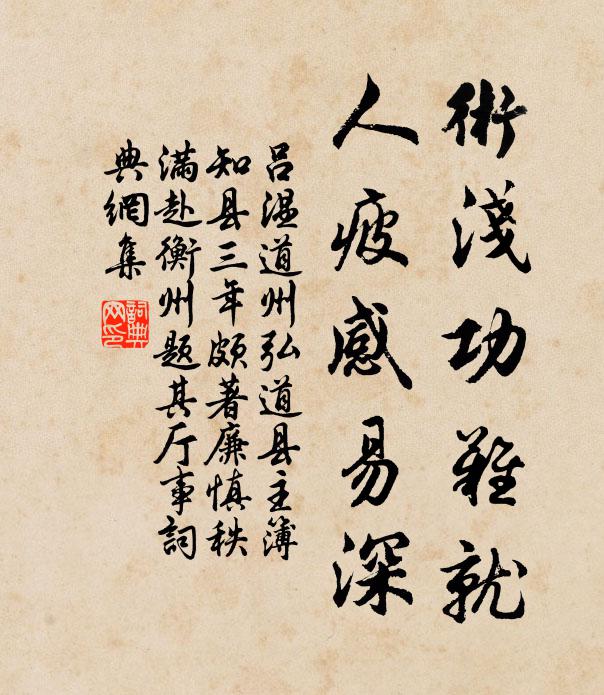 術淺功難就
人疲感易深
呂溫道州弘道县主簿
知县三年頗著廉慎秩
滿赴衡州題其厅事詞
典網集
詞典
网印